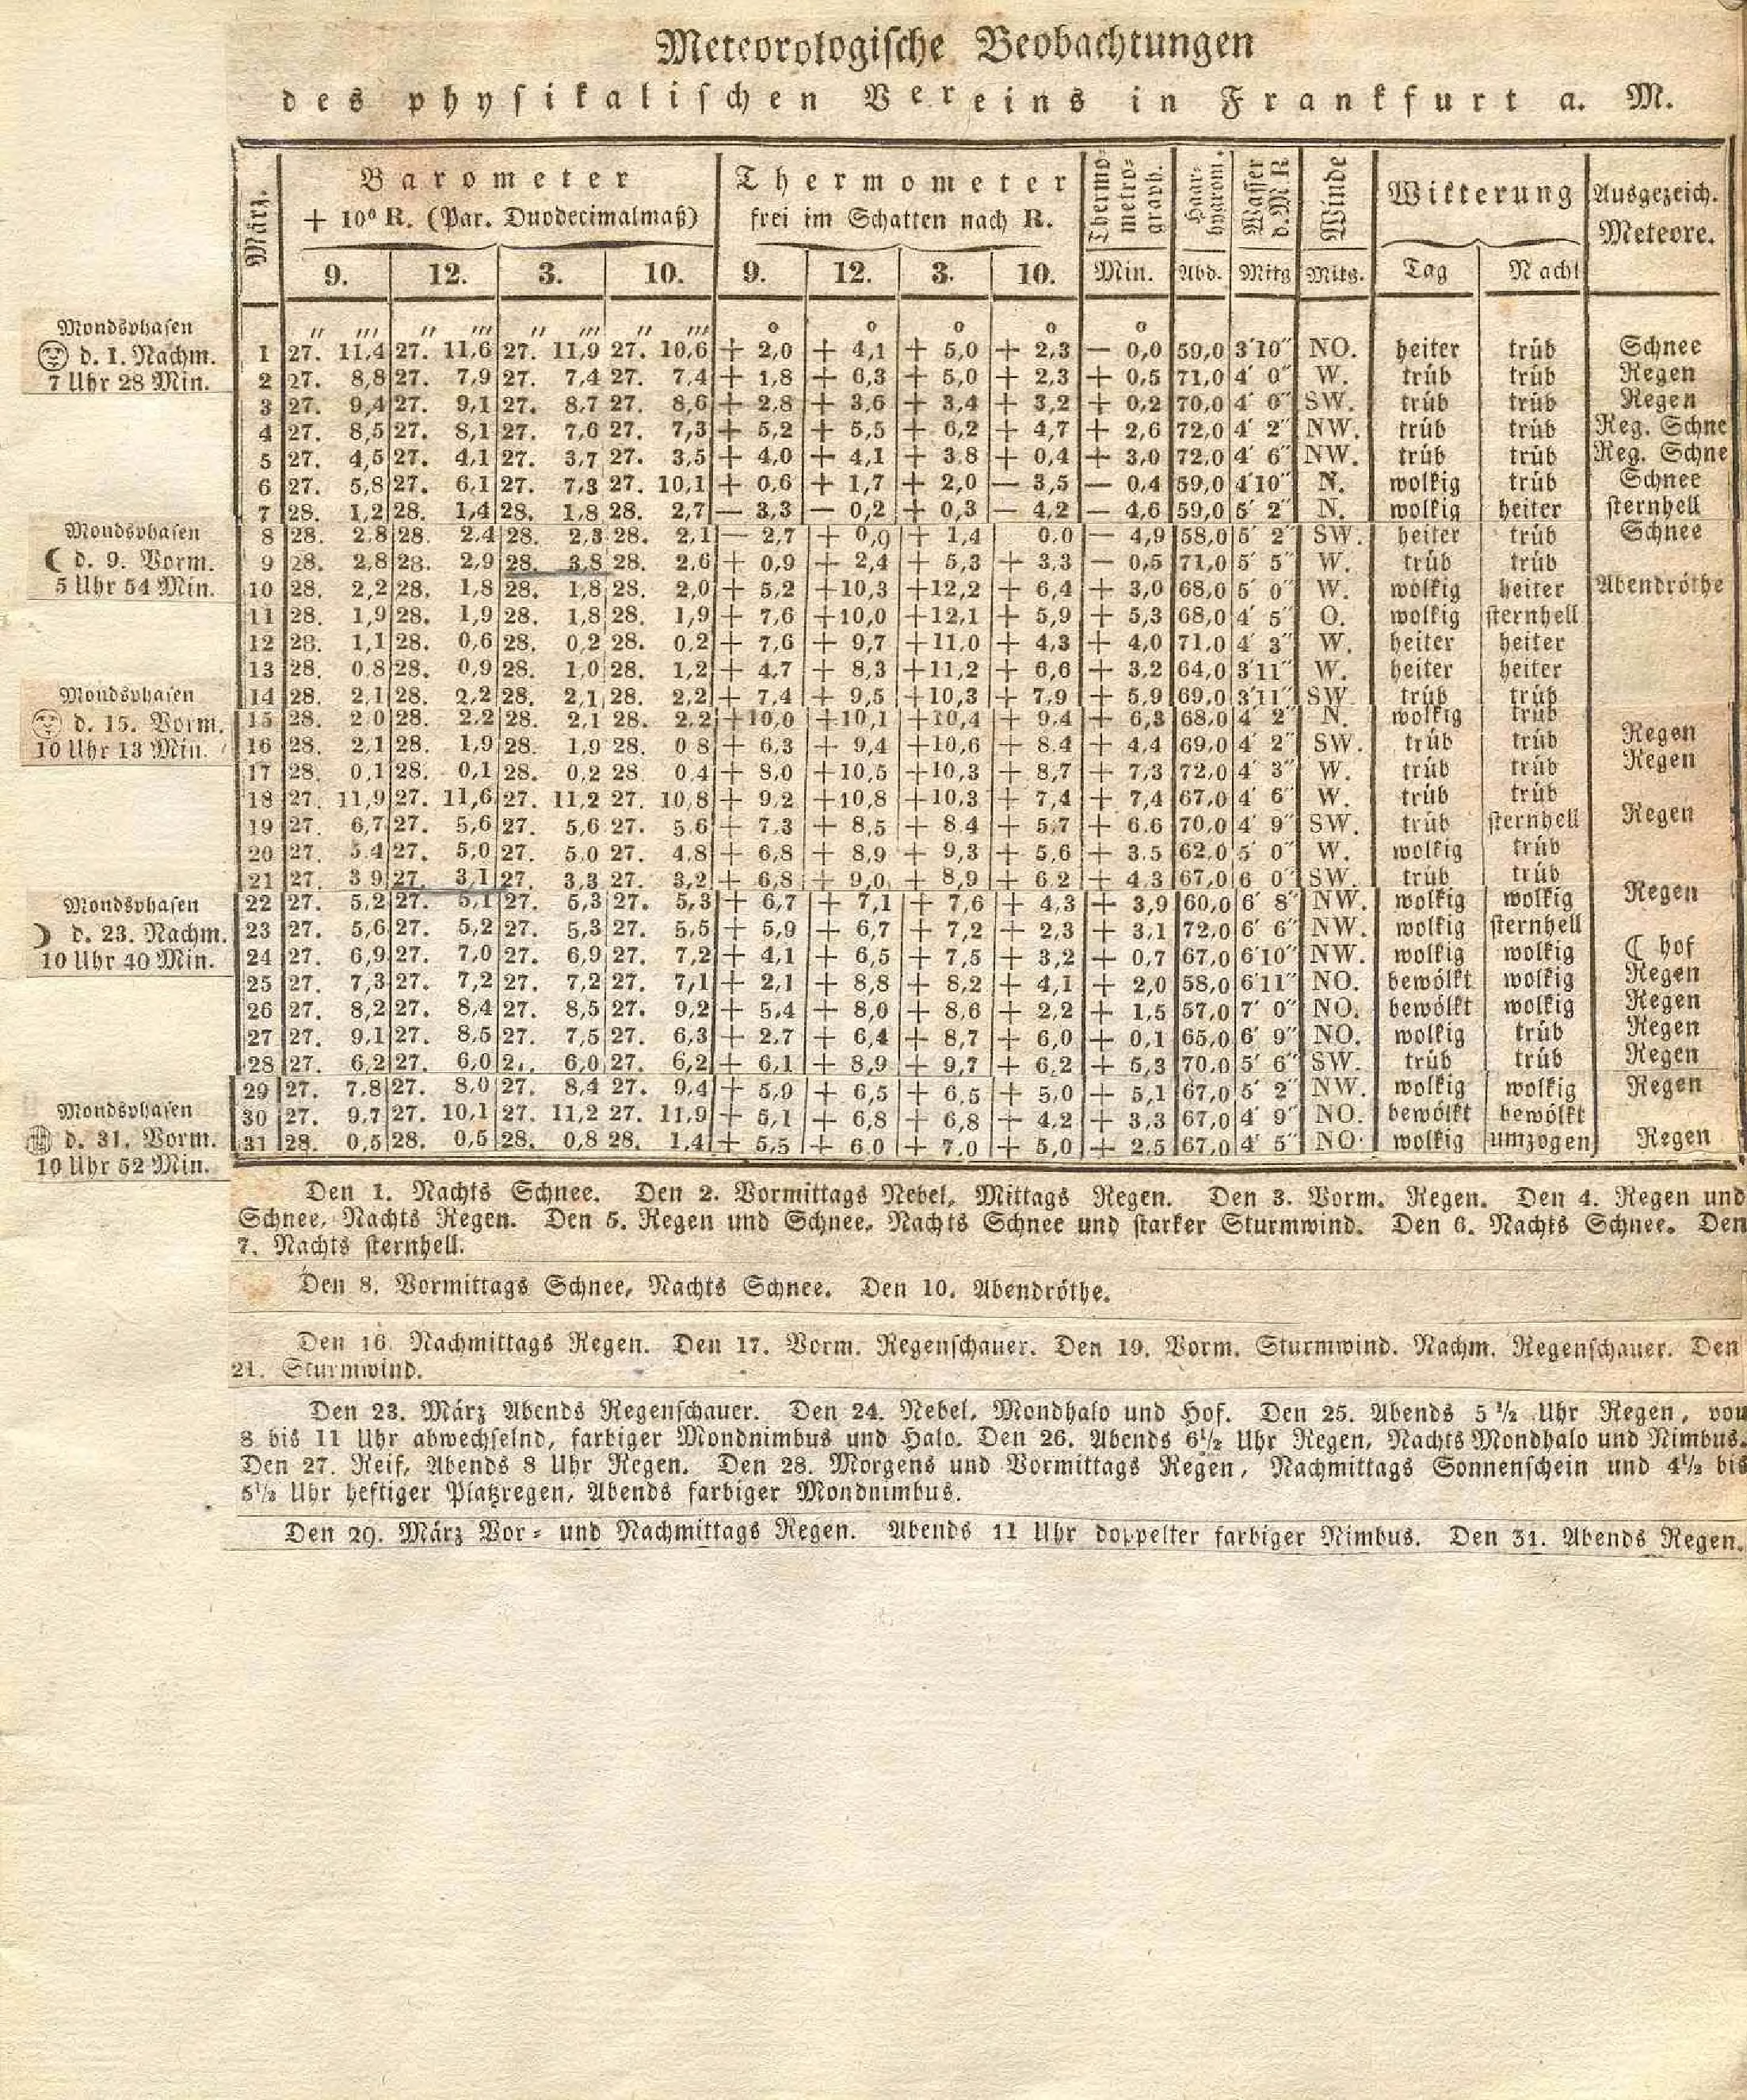 Meteorologische Beobachtungen
des physikalischen Vereins in Frankfurt a. M.
März. Barometer Thermometer Thermo-metro-graph. Haar-hyarom. Wasser d. M R Winde Witterung Ausgezeich. Meteore.
+ 10° R. (Par. Duodecimalmaß) frei im Schatten nach R.
9. 12. 3. 10. 9. 12. 3. 10. Min. Abd. Mitg Mitg. Tag Nacht
" ''' " ''' " ''' " ''' ° ° ° ° °
Mondsphasen
d. 1. Nachm.
7 Uhr 28 Min.
1 27. 11,4 27. 11,6 27. 11,9 27. 10,6 + 2,0 + 4,1 + 5,0 + 2,3 — 0,0 59,0 3'10" NO. heiter trüb Schnee
2 27. 8,8 27. 7,9 27. 7,4 27. 7,4 + 1,8 + 6,3 + 5,0 + 2,3 + 0,5 71,0 4' 0" W. trüb trüb Regen
3 27. 9,4 27. 9,1 27. 8,7 27. 8,6 + 2,8 + 3,6 + 3,4 + 3,2 + 0,2 70,0 4' 0" SW. trüb trüb Regen
4 27. 8,5 27. 8,1 27. 7,6 27. 7,3 + 5,2 + 5,5 + 6,2 + 4,7 + 2,6 72,0 4' 2" NW. trüb trüb Reg. Schne
5 27. 4,5 27. 4,1 27. 3,7 27. 3,5 + 4,0 + 4,1 + 3,8 + 0,4 + 3,0 72,0 4' 6" NW. trüb trüb Reg. Schne
6 27. 5,8 27. 6,1 27. 7,3 27. 10,1 + 0,6 + 1,7 + 2,0 — 3,5 — 0,4 59,0 4'10" N. wolkig trüb Schnee
7 28. 1,2 28. 1,4 28. 1,8 28. 2,7 — 3,3 — 0,2 + 0,3 — 4,2 — 4,6 59,0 5' 2" N. wolkig heiter sternhell
Mondsphasen
d. 9. Vorm.
5 Uhr 54 Min.
8 28. 2,8 28. 2,4 28. 2,3 28. 2,1 — 2,7 + 0,9 + 1,4 0,0 — 4,9 58,0 5' 2" SW. heiter trüb Schnee
9 28. 2,8 28. 2,9 28. 3,8 28. 2,6 + 0,9 + 2,4 + 5,3 + 3,3 — 0,5 71,0 5' 5" W. trüb trüb
10 28. 2,2 28. 1,8 28. 1,8 28. 2,0 + 5,2 +10,3 +12,2 + 6,4 + 3,0 68,0 5' 0" W. wolkig heiter Abendröthe
11 28. 1,9 28. 1,9 28. 1,8 28. 1,9 + 7,6 +10,0 +12,1 + 5,9 + 5,3 68,0 4' 5" O. wolkig sternhell
12 28. 1,1 28. 0,6 28. 0,2 28. 0,2 + 7,6 + 9,7 +11,0 + 4,3 + 4,0 71,0 4' 3" W. heiter heiter
13 28. 0,8 28. 0,9 28. 1,0 28. 1,2 + 4,7 + 8,3 +11,2 + 6,6 + 3,2 64,0 3'11" W. heiter heiter
14 28. 2,1 28. 2,2 28. 2,1 28. 2,2 + 7,4 + 9,5 +10,3 + 7,9 + 5,9 69,0 3'11" SW trüb trüb
Mondsphasen
d. 15. Vorm.
10 Uhr 13 Min.
15 28. 2,0 28. 2,2 28. 2,1 28. 2,2 +10,0 +10,1 +10,4 + 9,4 + 6,3 68,0 4' 2" N. wolkig trüb
16 28. 2,1 28. 1,9 28. 1,9 28. 0 8 + 6,3 + 9,4 +10,6 + 8,4 + 4,4 69,0 4' 2" SW. trüb trüb Regen
17 28. 0,1 28. 0,1 28. 0,2 28 0,4 + 8,0 +10,5 +10,3 + 8,7 + 7,3 72,0 4' 3" W. trüb trüb Regen
18 27. 11,9 27. 11,6 27. 11,2 27. 10,8 + 9,2 +10,8 +10,3 + 7,4 + 7,4 67,0 4' 6" W. trüb trüb
19 27. 6,7 27. 5,6 27. 5,6 27. 5,6 + 7,3 + 8,5 + 8,4 + 5,7 + 6,6 70,0 4' 9" SW. trüb sternhell Regen
20 27. 5.4 27. 5,0 27. 5,0 27. 4,8 + 6,8 + 8,9 + 9,3 + 5,6 + 3,5 62,0 5' 0" W. wolkig trüb
21 27. 3 9 27. 3,1 27. 3,3 27. 3,2 + 6,8 + 9,0 + 8,9 + 6,2 + 4,3 67,0 6 0" SW. trüb trüb
Mondsphasen
d. 23. Nachm.
10 Uhr 40 Min.
22 27. 5,2 27. 5,1 27. 5,3 27. 5,3 + 6,7 + 7,1 + 7,6 + 4,3 + 3,9 60,0 6' 8" NW. wolkig wolkig Regen
23 27. 5,6 27. 5,2 27. 5,3 27. 5,5 + 5,9 + 6,7 + 7,2 + 2,3 + 3,1 72,0 6' 6" NW. wolkig sternhell
24 27. 6,9 27. 7,0 27. 6,9 27. 7,2 + 4,1 + 6,5 + 7,5 + 3,2 + 0,7 67,0 6'10" NW. wolkig wolkig ☾ hof
25 27. 7,3 27. 7,2 27. 7,2 27. 7,1 + 2,1 + 8,8 + 8,2 + 4,1 + 2,0 58,0 6'11" NO. bewölkt wolkig Regen
26 27. 8,2 27. 8,4 27. 8,5 27. 9,2 + 5,4 + 8,0 + 8,6 + 2,2 + 1,5 57,0 7' 0" NO. bewölkt wolkig Regen
27 27. 9,1 27. 8,5 27. 7,5 27. 6,3 + 2,7 + 6,4 + 8,7 + 6,0 + 0,1 65,0 6' 9" NO. wolkig trüb Regen
28 27. 6,2 27. 6,0 2. 6,0 27. 6,2 + 6,1 + 8,9 + 9,7 + 6,2 + 5,3 70,0 5' 6" SW. trüb trüb Regen
Mondsphasen
d. 31. Vorm.
10 Uhr 52 Min.
29 27. 7,8 27. 8,0 27. 8,4 27. 9,4 + 5,9 + 6,5 + 6,5 + 5,0 + 5,1 67,0 5' 2" NW. wolkig wolkig Regen
30 27. 9,7 27. 10,1 27. 11,2 27. 11,9 + 5,1 + 6,8 + 6,8 + 4,2 + 3,3 67,0 4' 9" NO. bewölkt bewölkt
31 28. 0,5 28. 0,5 28. 0,8 28. 1,4 + 5,5 + 6,0 + 7,0 + 5,0 + 2,5 67,0 4' 5" NO. wolkig umzogen Regen
Den 1. Nachts Schnee. Den 2. Vormittags Nebel, Mittags Regen. Den 3. Vorm. Regen. Den 4. Regen und
Schnee, Nachts Regen. Den 5. Regen und Schnee, Nachts Schnee und starker Sturmwind. Den 6. Nachts Schnee. Den
7. Nachts sternhell.
Den 8. Vormittags Schnee, Nachts Schnee. Den 10. Abendröthe.
Den 16. Nachmittags Regen. Den 17. Vorm. Regenschauer. Den 19. Vorm. Sturmwind. Nachm. Regenschauer. Den
21. Sturmwind.
Den 23. März Abends Regenschauer. Den 24. Nebel, Mondhalo und Hof. Den 25. Abends 5 ½ Uhr Regen, von
8 bis 11 Uhr abwechselnd, farbiger Mondnimbus und Halo. Den 26. Abends 6½ Uhr Regen, Nachts Mondhalo und Nimbus.
Den 27. Reif, Abends 8 Uhr Regen. Den 28. Morgens und Vormittags Regen, Nachmittags Sonnenschein und 4½ bis
5½ Uhr heftiger Platzregen, Abends farbiger Mondnimbus.
Den 29. März Vor- und Nachmittags Regen. Abends 11 Uhr doppelter farbiger Nimbus. Den 31. Abends Regen.